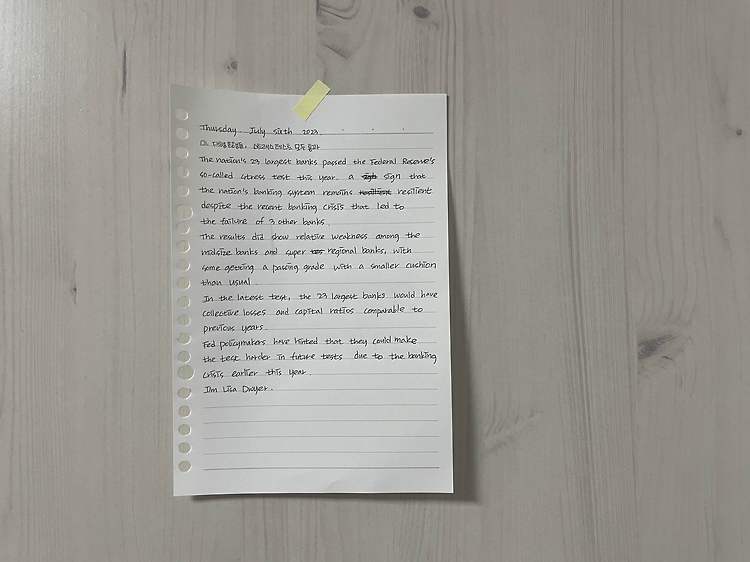 Thursday July sixth 2023.
미 대형은행들, 스트레스테스트 모두 통과
The nation's 23 largest banks passed the Federal Reserve's
so-called stress test this year. a sign that
the nation's banking system remains resilient
despite the recent banking crisis that led to
the failure of 3 other banks.
The results did show relative weakness among the
midsize banks and super regional banks, with
some getting a passing grade with a smaller cushion
than usual.
In the latest test, the 23 largest banks would have
collective losses and capital ratios comparable to
previous years.
Fed policymakers have hinted that they could make
the test harder in future tests due to the banking
crisis earlier this year.
I'm Lisa Dwyer.